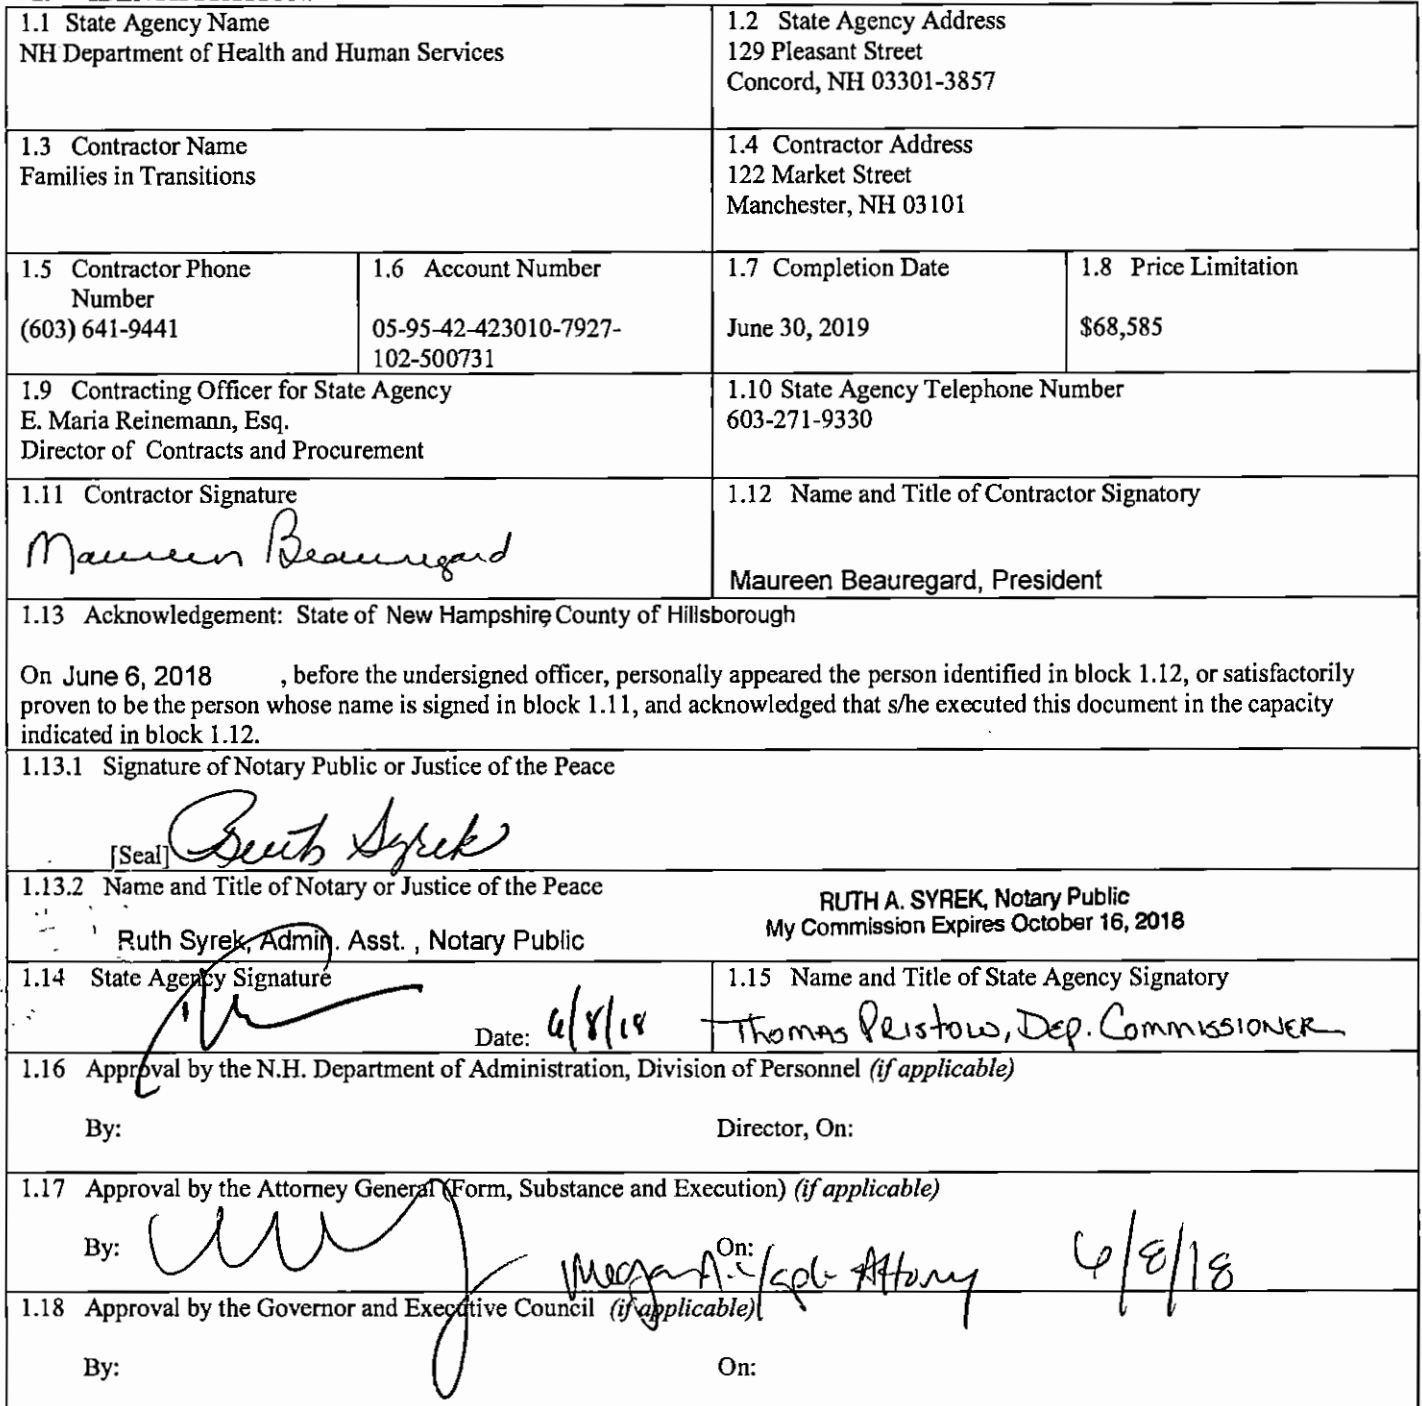 1.1 State Agency Name
NH Department of Health and Human Services
1.2 State Agency Address
129 Pleasant Street
Concord, NH 03301-3857
1.3 Contractor Name
Families in Transitions
1.4 Contractor Address
122 Market Street
Manchester, NH 03101
1.5 Contractor Phone
Number
(603) 641-9441
1.6 Account Number
05-95-42-423010-7927-
102-500731
1.7 Completion Date
June 30, 2019
1.8 Price Limitation
$68,585
1.9 Contracting Officer for State Agency
E. Maria Reinemann, Esq.
Director of Contracts and Procurement
1.10 State Agency Telephone Number
603-271-9330
1.11 Contractor Signature
Maureen Beauregard
1.12 Name and Title of Contractor Signatory
Maureen Beauregard, President
1.13 Acknowledgement: State of New Hampshire County of Hillsborough
On June 6, 2018 , before the undersigned officer, personally appeared the person identified in block 1.12, or satisfactorily
proven to be the person whose name is signed in block 1.11, and acknowledged that s/he executed this document in the capacity
indicated in block 1.12.
1.13.1 Signature of Notary Public or Justice of the Peace
[Seal] Ruth Syrek
1.13.2 Name and Title of Notary or Justice of the Peace
Ruth Syrek, Admin. Asst. , Notary Public
RUTH A. SYREK, Notary Public
My Commission Expires October 16, 2018
1.14 State Agency Signature
Date: 6/8/18
1.15 Name and Title of State Agency Signatory
Thomas Pristow, Dep. Commissioner
1.16 Approval by the N.H. Department of Administration, Division of Personnel (if applicable)
By: Director, On:
1.17 Approval by the Attorney General (Form, Substance and Execution) (if applicable)
By: On: Megan A. Attorney 6/8/18
1.18 Approval by the Governor and Executive Council (if applicable)
By: On: